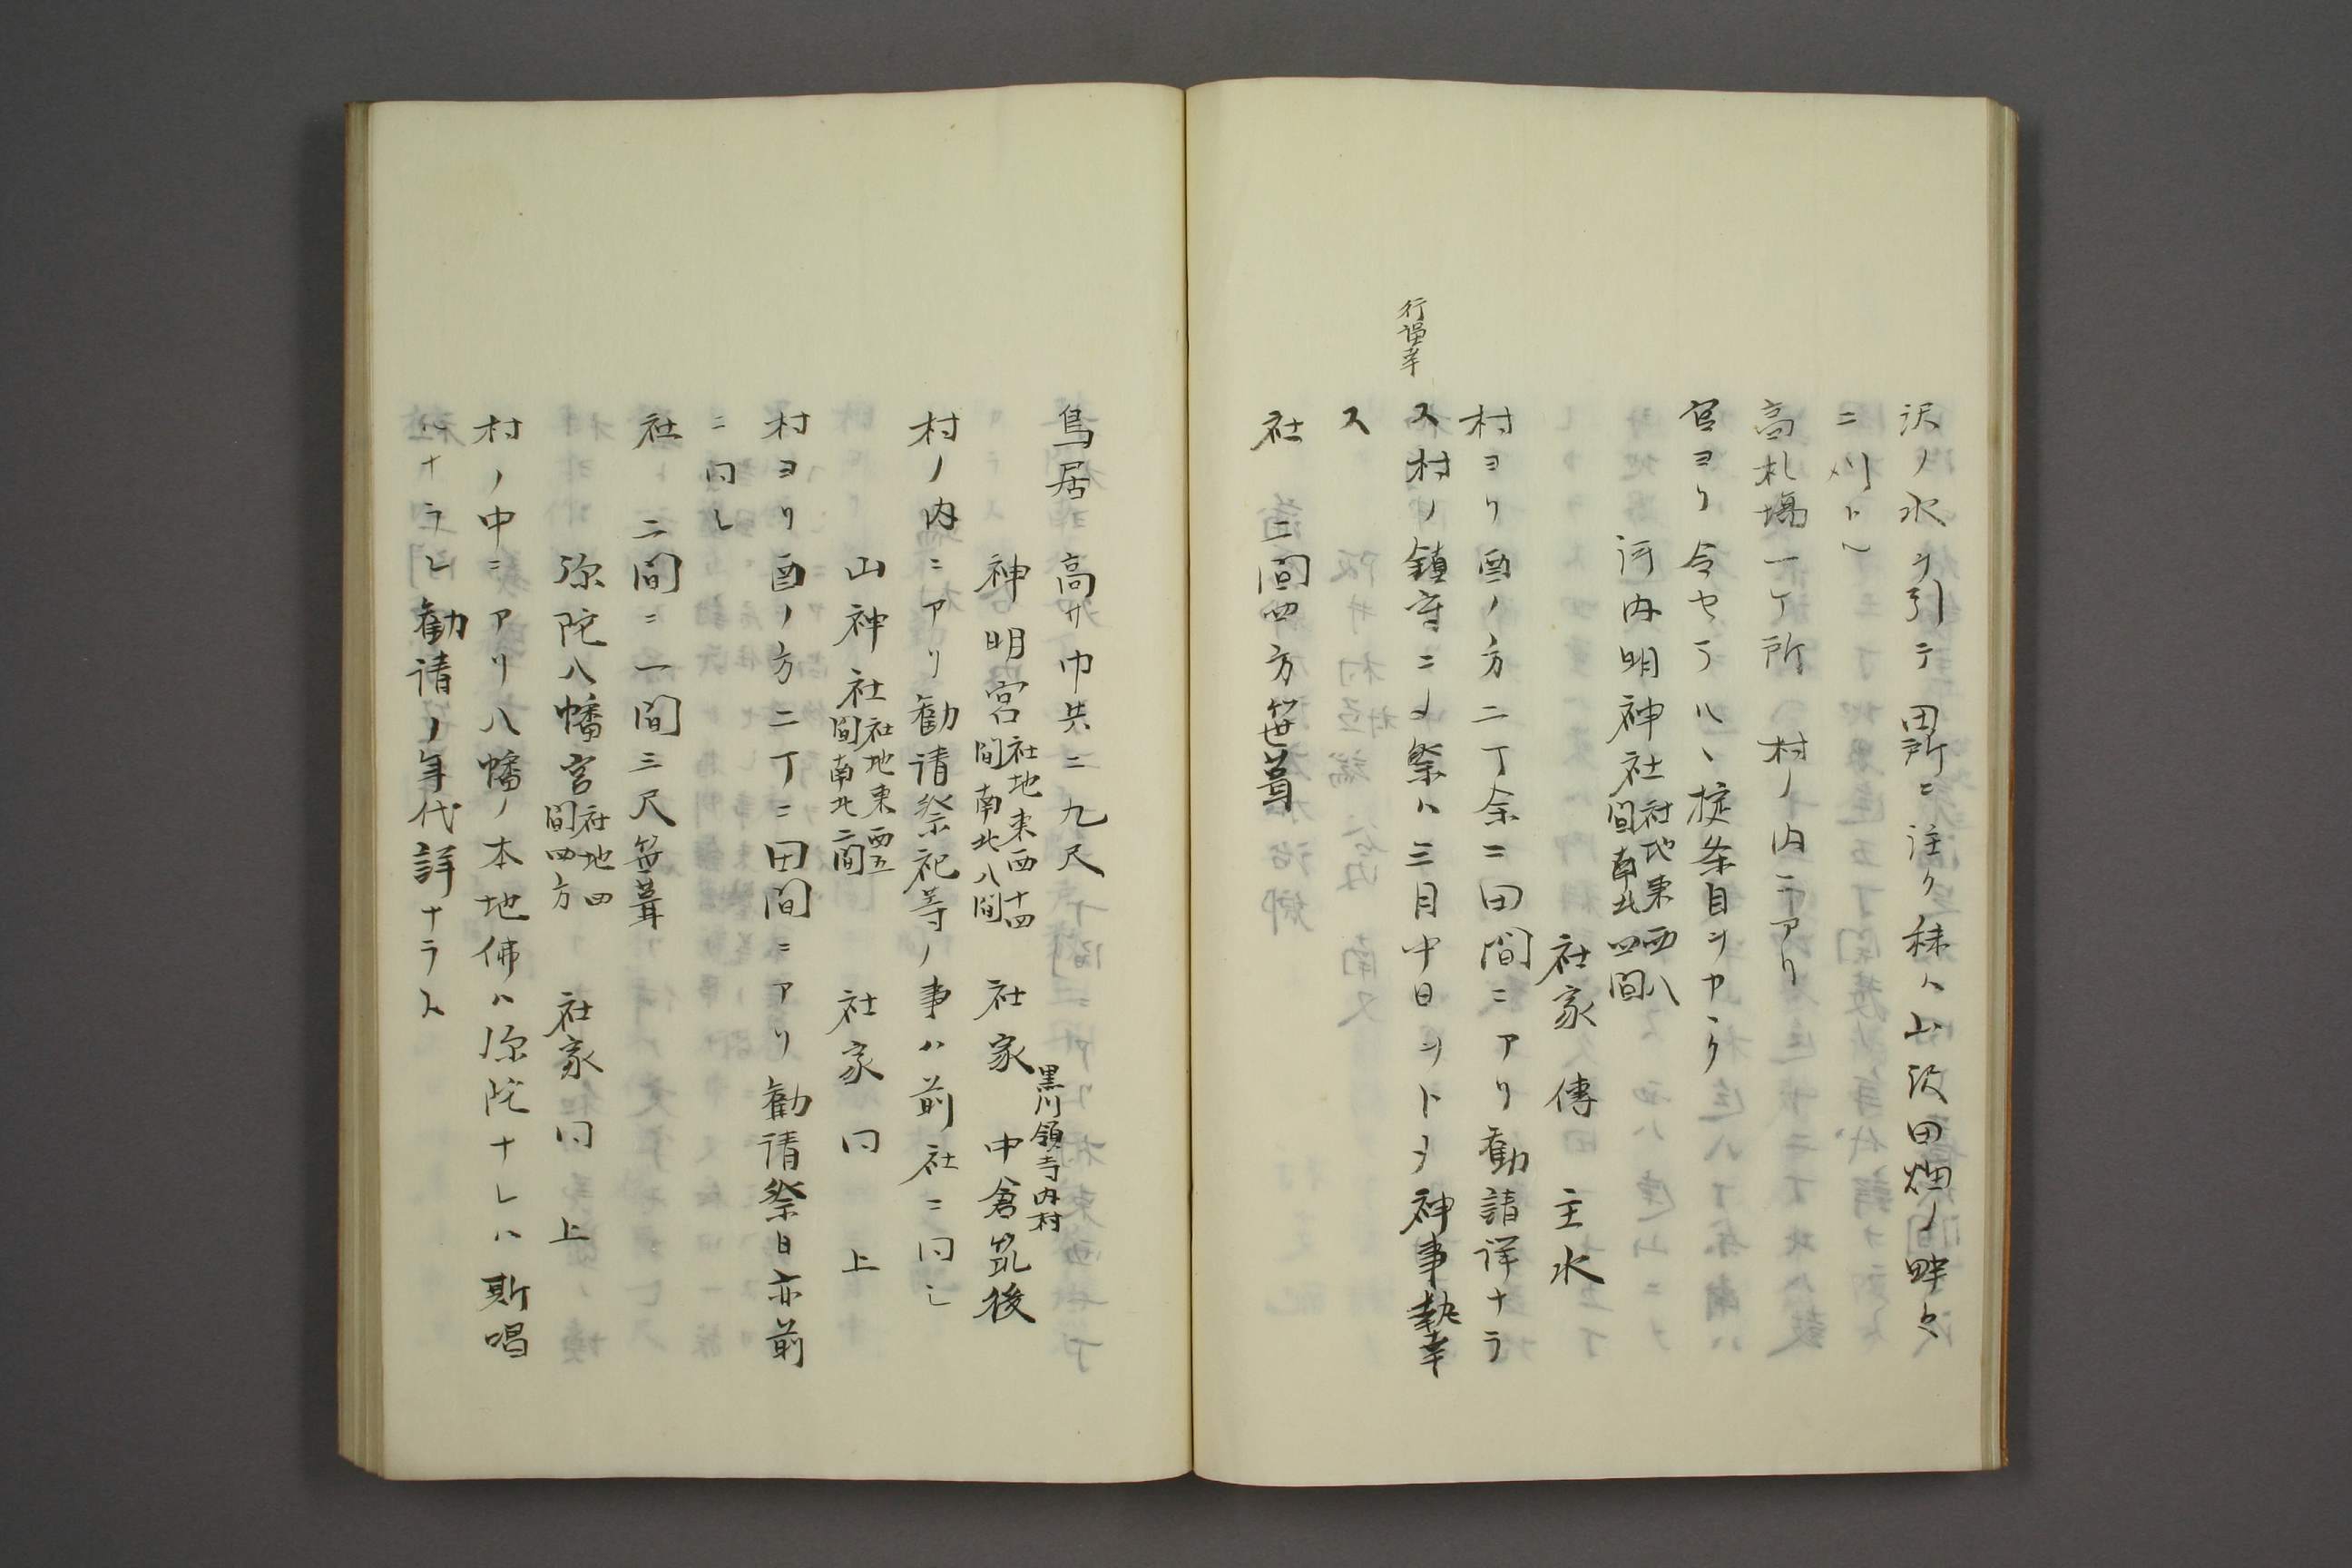 沢ノ水ヲ引テ田所ニ注ク秣ハ山沢田畑ノ畔々
ニ刈ト〜
高札塲一丁所村ノ内ニアリ
官ヨリ令セラルヽ掟条目ヲカヽク
河内明神社 社地東西八間南北四間
社家 傳 主水
村ヨリ酉ノ方二丁余ニ田間ニアリ勧請詳ナラ
ス村ノ鎮守ニメ祭ハ三月中日ヲトヲ神事執幸
行謬幸
ス
社 二間四方笹葺
鳥居 高サ巾共ニ九尺
神明宮 社地東西十四間南北八間 社家 黒川領寺内村 中倉筑後
村ノ内ニアリ勧請祭祀等ノ事ハ前社ニ同シ
山神社 社地東西五間南北二間 社家同 上
村ヨリ酉ノ方二丁ニ田間ニアリ勧請祭日亦前
ニ同し
社 二間ニ一間三尺笹葺
弥陀八幡宮 社地四間四方 社家同 上
村ノ中ニアリ八幡ノ本地佛ハ弥陀ナレハ斯唱
ルナラシ勧請ノ年代詳ナラス